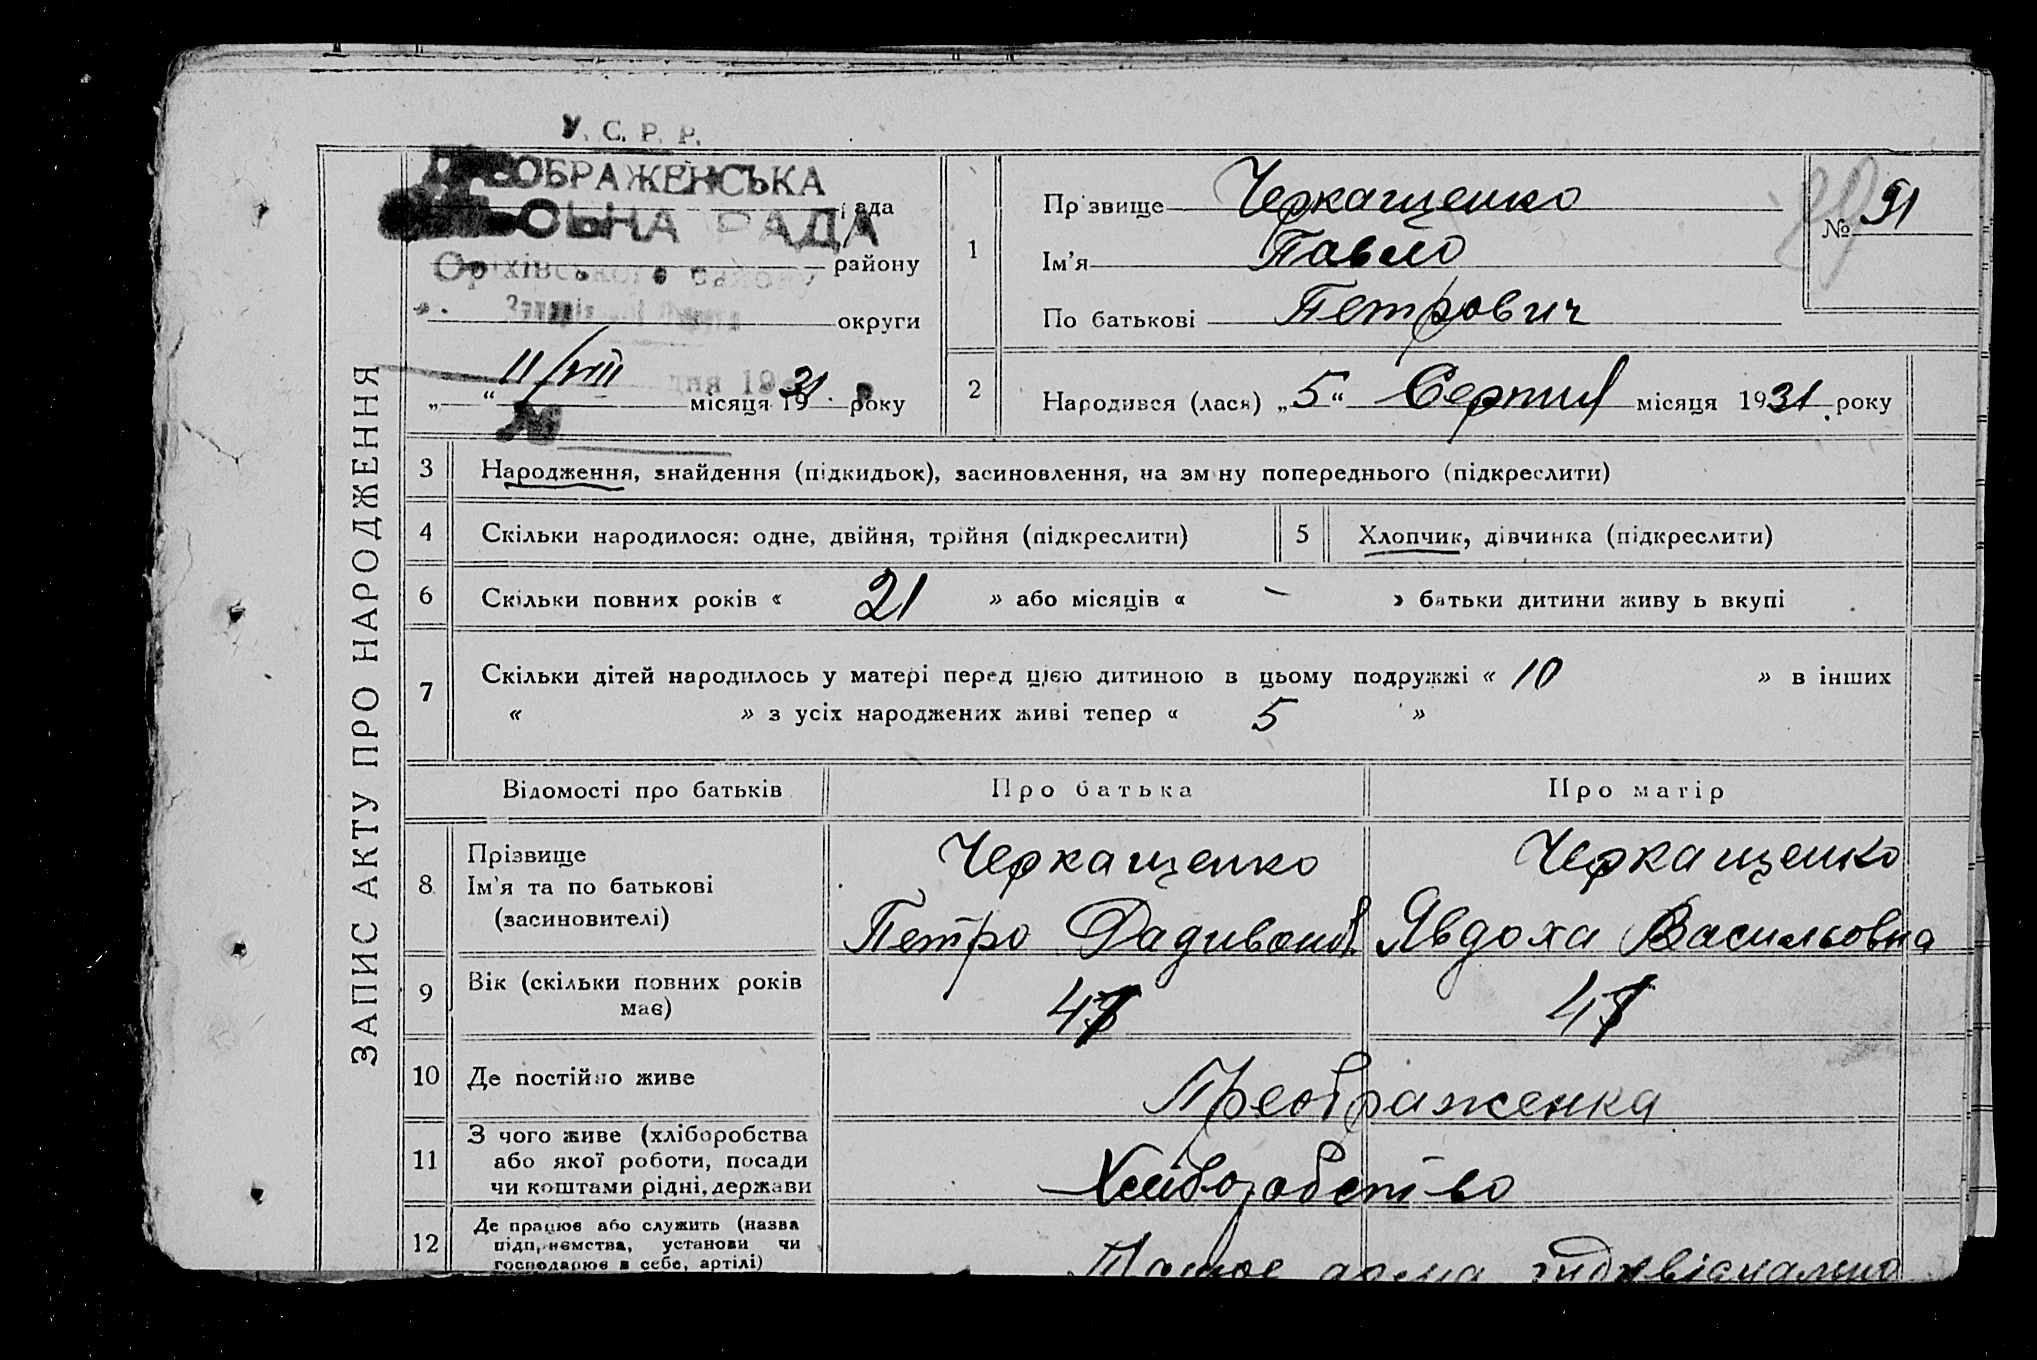 ЗАПИС АКТУ ПРО НАРОДЖЕННЯ
У. С. Р. Р.
ПРЕОБРАЖЕНСЬКА
рада
РАДА
Оріхівського району
району
округи
11/VIII дня 19
„ “ місяця 1931 року
1
Прізвище Черкащенко
Ім'я Павло
По батькові Петрович
№ 91
2
Народився (лася) „5“ Серпня місяця 1931 року
3 Народження, знайдення (підкидьок), засиновлення, на зміну попереднього (підкреслити)
4 Скільки народилося: одне, двійня, трійня (підкреслити) 5 Хлопчик, дівчинка (підкреслити)
6 Скільки повних років « 21 » або місяців « – » батьки дитини живуть вкупі
7 Скільки дітей народилось у матері перед цією дитиною в цьому подружжі « 10 » в інших
« » з усіх народжених живі тепер « 5 »
Відомості про батьків Про батька Про матір
8 Прізвище
Ім'я та по батькові
(засиновителі)
Черкащенко
Петро
Черкащенко
Явдоха Васильовна
9 Вік (скільки повних років
має)
10 Де постійно живе Преображенка
11 З чого живе (хліборобства
або якої роботи, посади
чи коштами рідні, держави
Хліборобство
12 Де працює або служить (назва
підприємства, установи чи
господарює в себе, артілі)
індивідуально